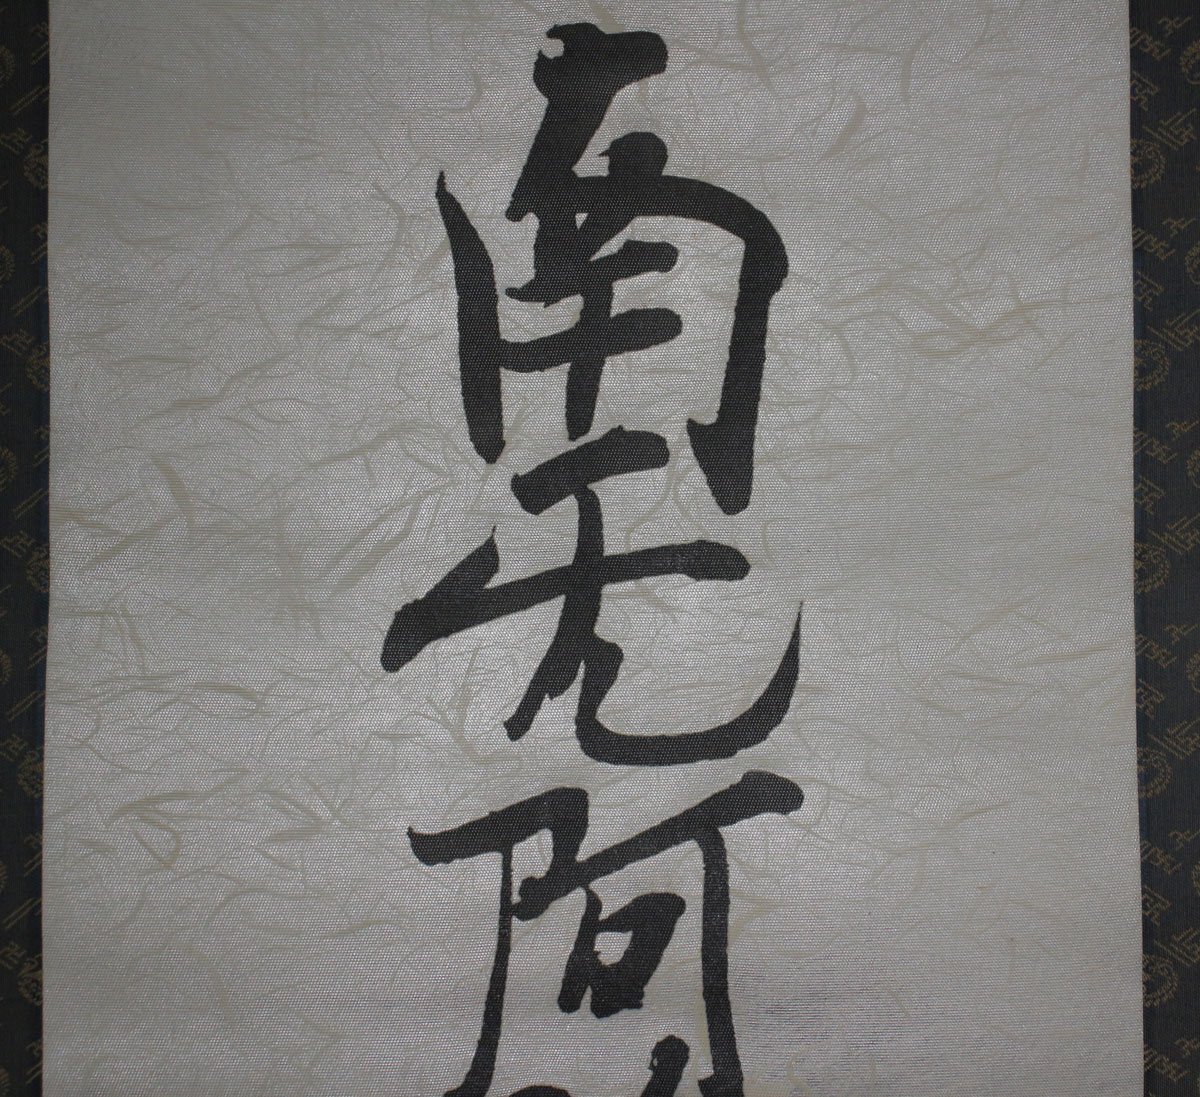 南无阿